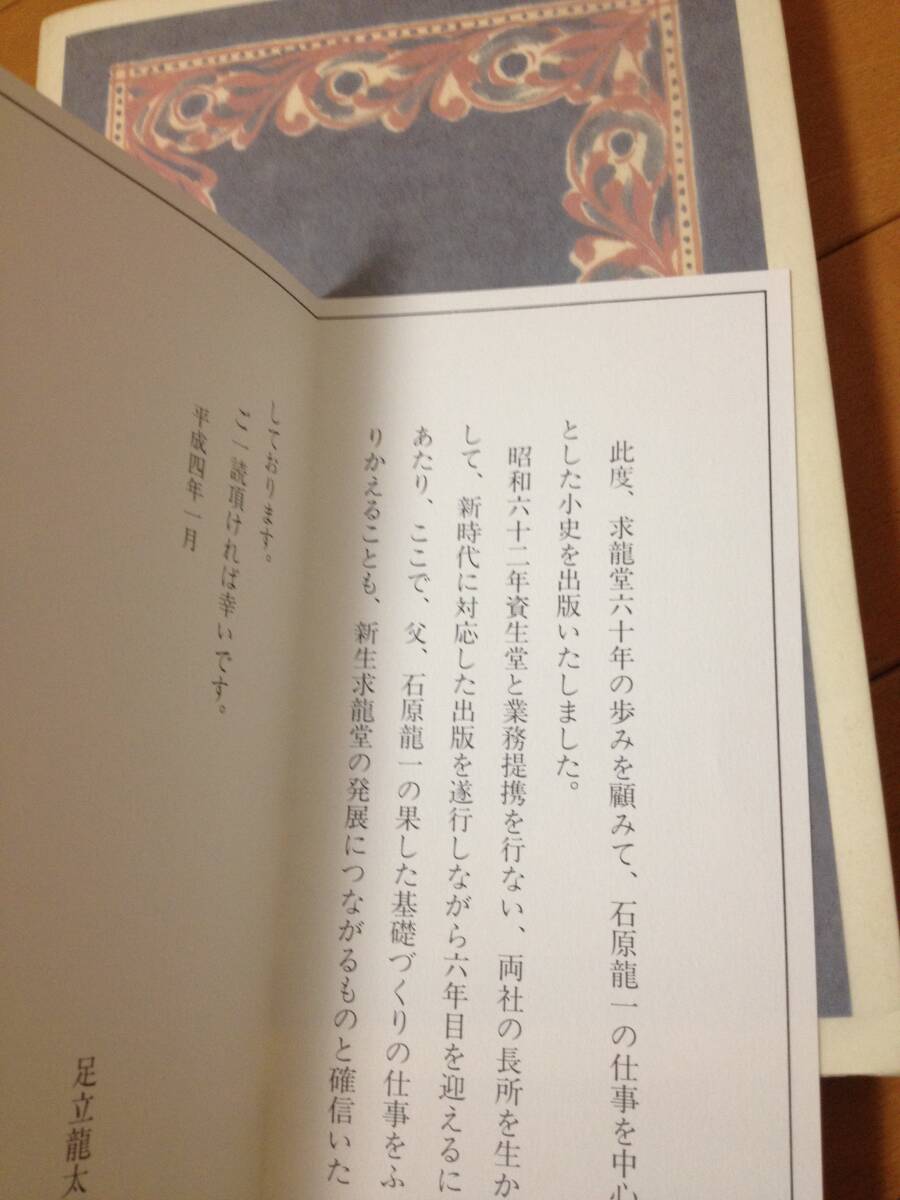 此度、求龍堂六十年の歩みを顧みて、石原龍一の仕事を中心
とした小史を出版いたしました。
昭和六十二年資生堂と業務提携を行ない、両社の長所を生か
して、新時代に対応した出版を遂行しながら六年目を迎えるに
あたり、ここで、父、石原龍一の果した基礎づくりの仕事をふ
りかえることも、新生求龍堂の発展につながるものと確信いた
しております。
ご一読頂ければ幸いです。
平成四年一月
足立龍太